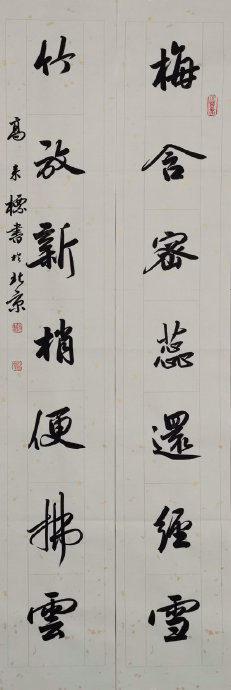 梅含密蕊還經雪
竹放新梢便拂雲
高来標書於北京